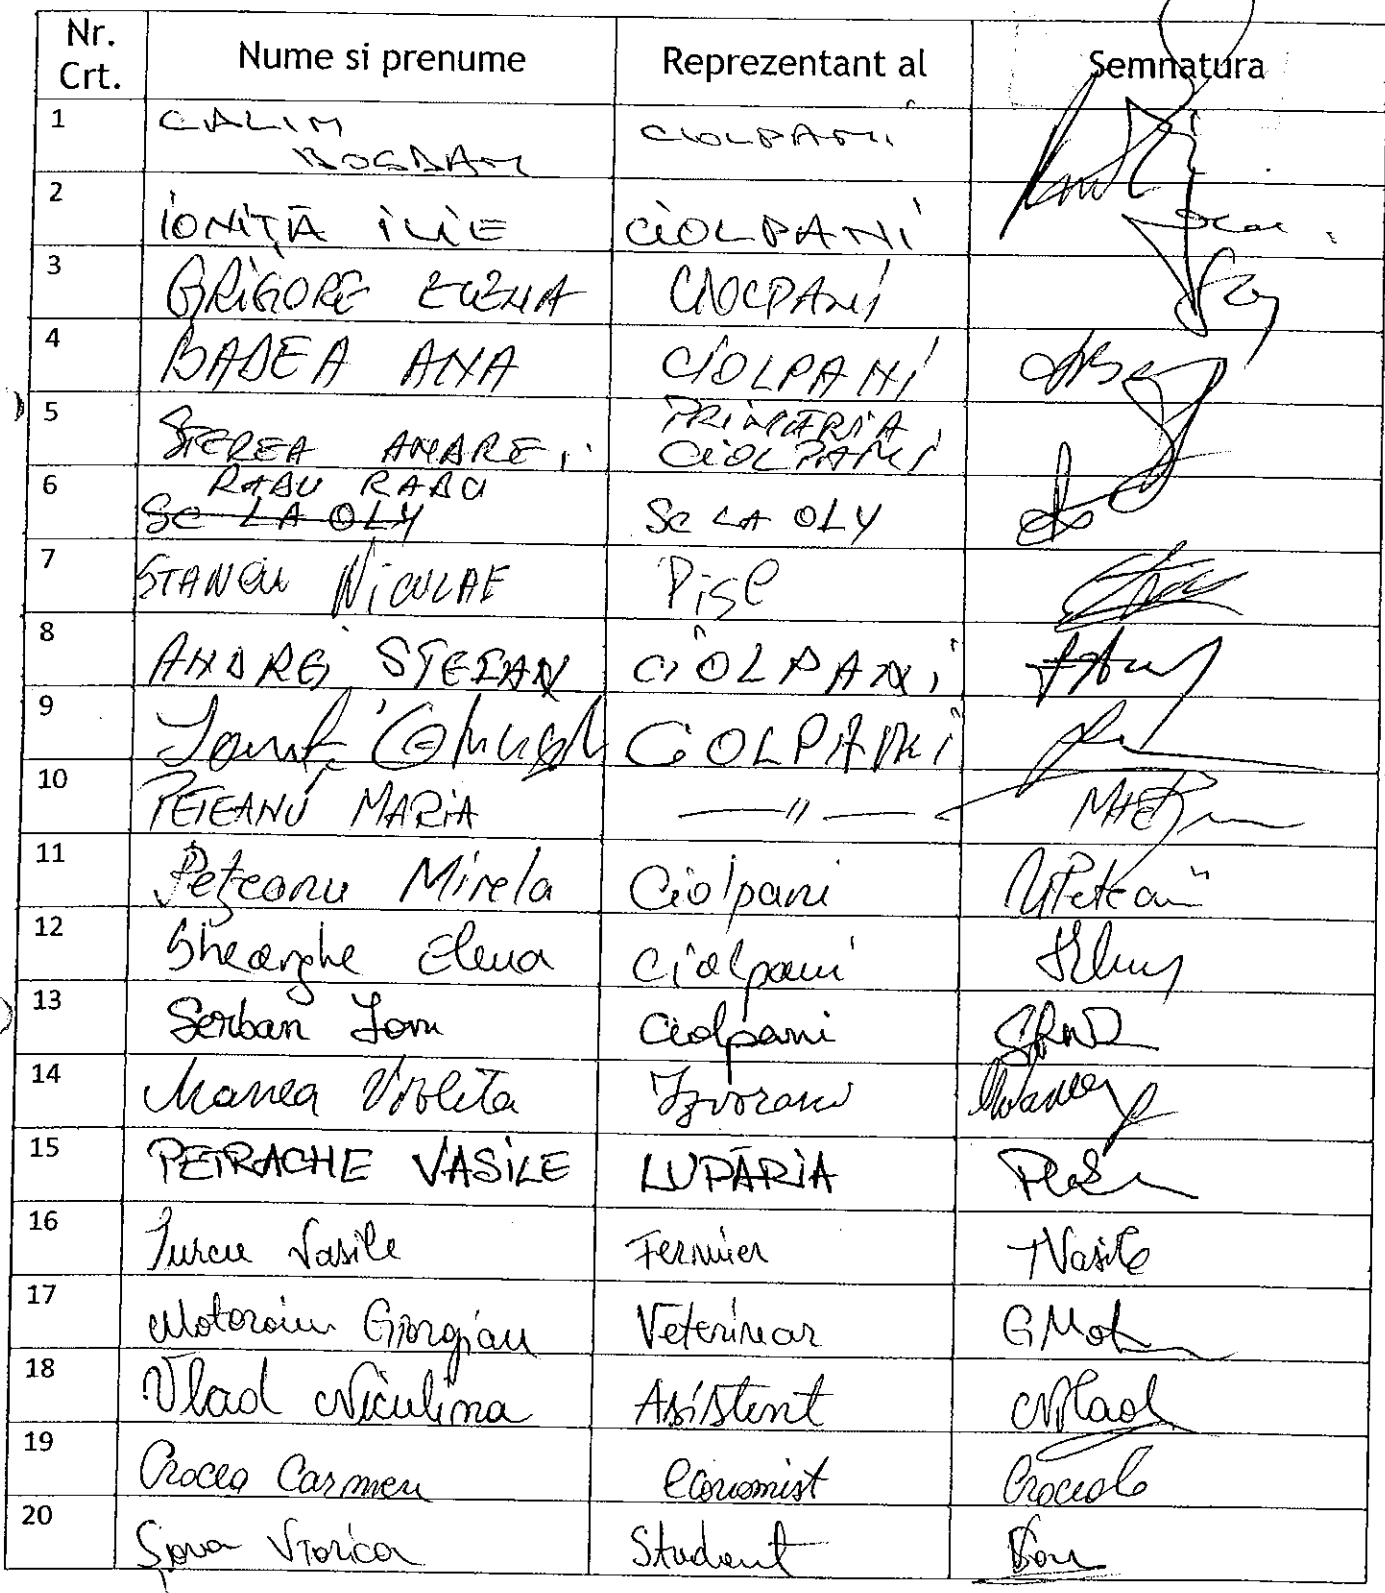 Nr. Crt. Nume si prenume Reprezentant al Semnatura
1 CALIM CIOLPANI
BOGDAN
2 IONIȚĂ ILIE CIOLPANI
3 GRIGORE ELENA CIOLPANI
4 BADEA ANA CIOLPANI
5 STEREA ANDREI PRIMĂRIA
CIOLPANI
6 RADU RADU
SC LA OLY SC LA OLY
7 STANCIU NICULAE
8 ANDREI STEFAN CIOLPANI
9 CIOLPANI
10 PETEANU MARIA —〃—
11 Pețeanu Mirela Ciolpani
12 Gheorghe Elena Ciolpani
13 Serban Ion Ciolpani
14 Manea Violeta Izvorani
15 PETRACHE VASILE LUPĂRIA
16 Turcu Vasile Fermier TVasile
17 Motoroiu Giorgian Veterinar GMot
18 Vlad Niculina Asistent NVlad
19 Crocea Carmen Economist
20 Viorica Student